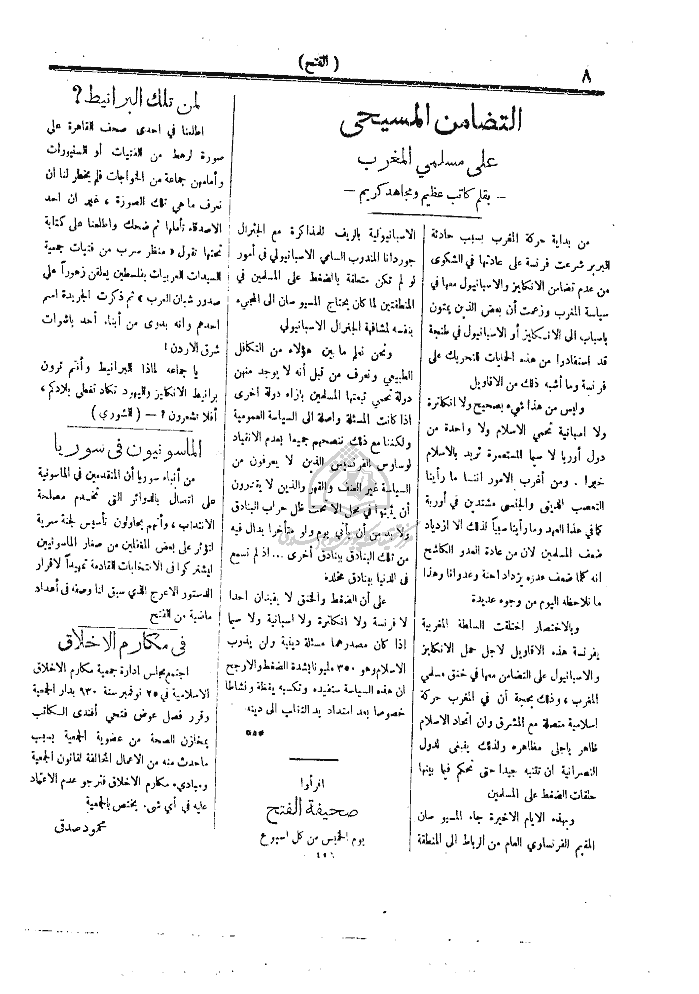 ٨
( الفتح )
التضامن المسيحى
على مسلمي المغرب
– بقلم كاتب عظيم ومجاهد كريم –
من بداية حركة المغرب بسبب حادثة
البربر شرعت فرنسة على عادتها في الشكوى
من عدم تضامن الانكليز والاسبانيول معها في
سياسة المغرب وزعمت أن بعض الذين يمتون
باسباب الى الانكليز أو الاسبانيول في طنجة
قد استفادوا من هذه الحمايات للتحريك على
فرنسة وما أشبه ذلك من الاقاويل
وليس من هذا شيء بصحيح ولا انكلترة
ولا اسبانية تحمي الاسلام ولا واحدة من
دول أوربا لا سيما المستعمرة تريد بالاسلام
خيرا . ومن أغرب الامور اننا ما رأينا
التعصب الديني والجنسي مشتدين في أوربة
كما في هذا العهد وما رأينا سبباً لذلك الا ازدياد
ضعف المسلمين لان من عادة العدو الكاشح
انه كلما ضعف عدوه يزداد احنة وعدوانا وهذا
ما نلاحظه اليوم من وجوه عديدة
وبالاختصار اختلقت السلطة المغربية
بفرنسة هذه الاقاويل لاجل حمل الانكليز
والاسبانيول على التضامن معها في خنق مسلمي
المغرب ، وذلك بحجة أن في المغرب حركة
اسلامية متصلة مع المشرق وان اتحاد الاسلام
ظاهر باجلى مظاهره ولذلك ينبغى لدول
النصرانية ان تتنبه جيدا حتى تحكم فيما بينها
حلقات الضغط على المسلمين
وبهذه الايام الاخيرة جاء المسيو سان
المقيم الفرنساوي العام من الرباط الى المنطقة
الاسبانيولية بالريف للمذاكرة مع الجنرال
جوردانا المندوب السامي الاسبانيولي في أمور
لو لم تكن متعلقة بالضغط على المسلمين في
المنطقتين لما كان يحتاج المسيو سان الى المجيء
بنفسه لمشافهة الجنرال الاسبانيولي
ونحن نعلم ما بين هؤلاء من التكافل
الطبيعي ونعرف من قبل أنه لا يوجد منهن
دولة تحمي تبعتها المسلمين بازاء دولة أخرى
اذا كانت المسئلة واصلة الى السياسة العمومية
ولكننا مع ذلك ننصحهم جميعا بعدم الانقياد
لوساوس الفرنسيس الذين لا يعرفون من
السياسة غير العنف والقهر والذين لا يقتدرون
أن يثبتوا في محل الا تحت ظل حراب البنادق
ولا بد من أن يأتي يوم ولو متأخرا بدال فيه
من تلك البنادق بنادق أخرى ... اذ لم نسمع
في الدنيا ببنادق مخلدة
على أن الضغط والخنق لا يفيدان احدا
لا فرنسة ولا انكلترة ولا اسبانية ولا سيما
اذا كان مصدرهما مسئلة دينية ولن يذوب
الاسلام وهو ٣٥٠ مليونا بشدة الضغط والارجح
ان هذه السياسة ستفيده وتكسبه يقظة ونشاطا
خصوصا بعد امتداد يد التلاعب الى دينه
***
اقرأوا
صحيفة الفتح
يوم الخميس من كل اسبوع
لمن تلك البرانيط ؟
اطلعنا في احدى صحف القاهرة على
صورة لرهط من الفتيات أو السنيورات
وأمامهن جماعة من الخواجات فلم يخطر لنا ان
نعرف ما هي تلك الصورة ، غير ان احد
الاصدقاء تأملها ثم ضحك واطلعنا على كتابة
تحتها تقول « منظر سرب من فتيات جمعية
السيدات العربيات بفلسطين يعلقن زهوراً على
صدور شبان العرب » ثم ذكرت الجريدة اسم
احدهم وانه بدوى من أبناء أحد باشوات
شرق الاردن !
يا جماعه لماذا البرانيط وأنتم ترون
برانيط الانكليز واليهود تكاد تغطي بلادكم ،
أفلا تشعرون ? – ( الشورى )
الماسونيون فى سوريا
من أنباء سوريا أن المتقدمين في الماسونية
على اتصال بالدوائر التى تخدم مصلحة
الانتداب ، وأنهم يحاولون تأسيس لجنة سرية
لتؤثر على بعض المغفلين من صغار الماسونيين
ليشتركوا في الانتخابات القادمة تمهيداً لاقرار
الدستور الاعرج الذي سبق لنا وصفه في أعداد
ماضية من الفتح
فى مكارم الاخلاق
اجتمع مجلس ادارة جمعية مكارم الاخلاق
الاسلامية في ٢٥ نوفمبر سنة ٩٣٠ بدار الجمعية
وقرر فصل عوض فتحي أفندى الكاتب
بمخازن الصحة من عضوية الجمعية بسبب
ماحدث منه من الاعمال المخالفة لقانون الجمعية
ومباديء مكارم الاخلاق فنرجو عدم الاعتماد
عليه في أي شى. يختص بالجمعية
محمود صدقى